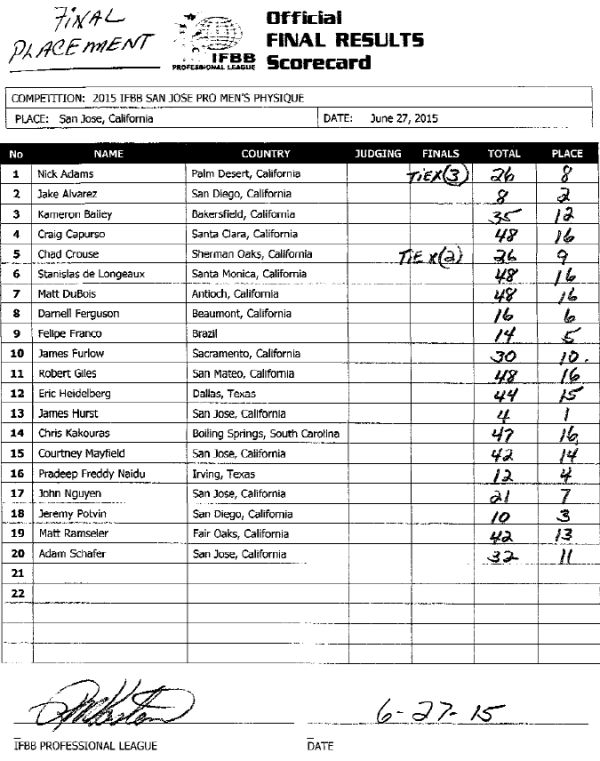 FINAL
PLACEMENT
IFBB
PROFESSIONAL LEAGUE
Official
FINAL RESULTS
Scorecard
COMPETITION: 2015 IFBB SAN JOSE PRO MEN'S PHYSIQUE
PLACE: San Jose, California DATE: June 27, 2015
No NAME COUNTRY JUDGING FINALS TOTAL PLACE
1 Nick Adams Palm Desert, California TIEX(3) 26 8
2 Jake Alvarez San Diego, California 8 2
3 Kameron Bailey Bakersfield, California 35 12
4 Craig Capurso Santa Clara, California 48 16
5 Chad Crouse Sherman Oaks, California TIEX(2) 26 9
6 Stanislas de Longeaux Santa Monica, California 48 16
7 Matt DuBois Antioch, California 48 16
8 Darnell Ferguson Beaumont, California 16 6
9 Felipe Franco Brazil 14 5
10 James Furlow Sacramento, California 30 10.
11 Robert Giles San Mateo, California 48 16
12 Eric Heidelberg Dallas, Texas 44 15
13 James Hurst San Jose, California 4 1
14 Chris Kakouras Boiling Springs, South Carolina 47 16
15 Courtney Mayfield San Jose, California 42 14
16 Pradeep Freddy Naidu Irving, Texas 12 4
17 John Nguyen San Jose, California 21 7
18 Jeremy Potvin San Diego, California 10 3
19 Matt Ramseler Fair Oaks, California 42 13
20 Adam Schafer San Jose, California 32 11
21
22
6-27-15
IFBB PROFESSIONAL LEAGUE DATE